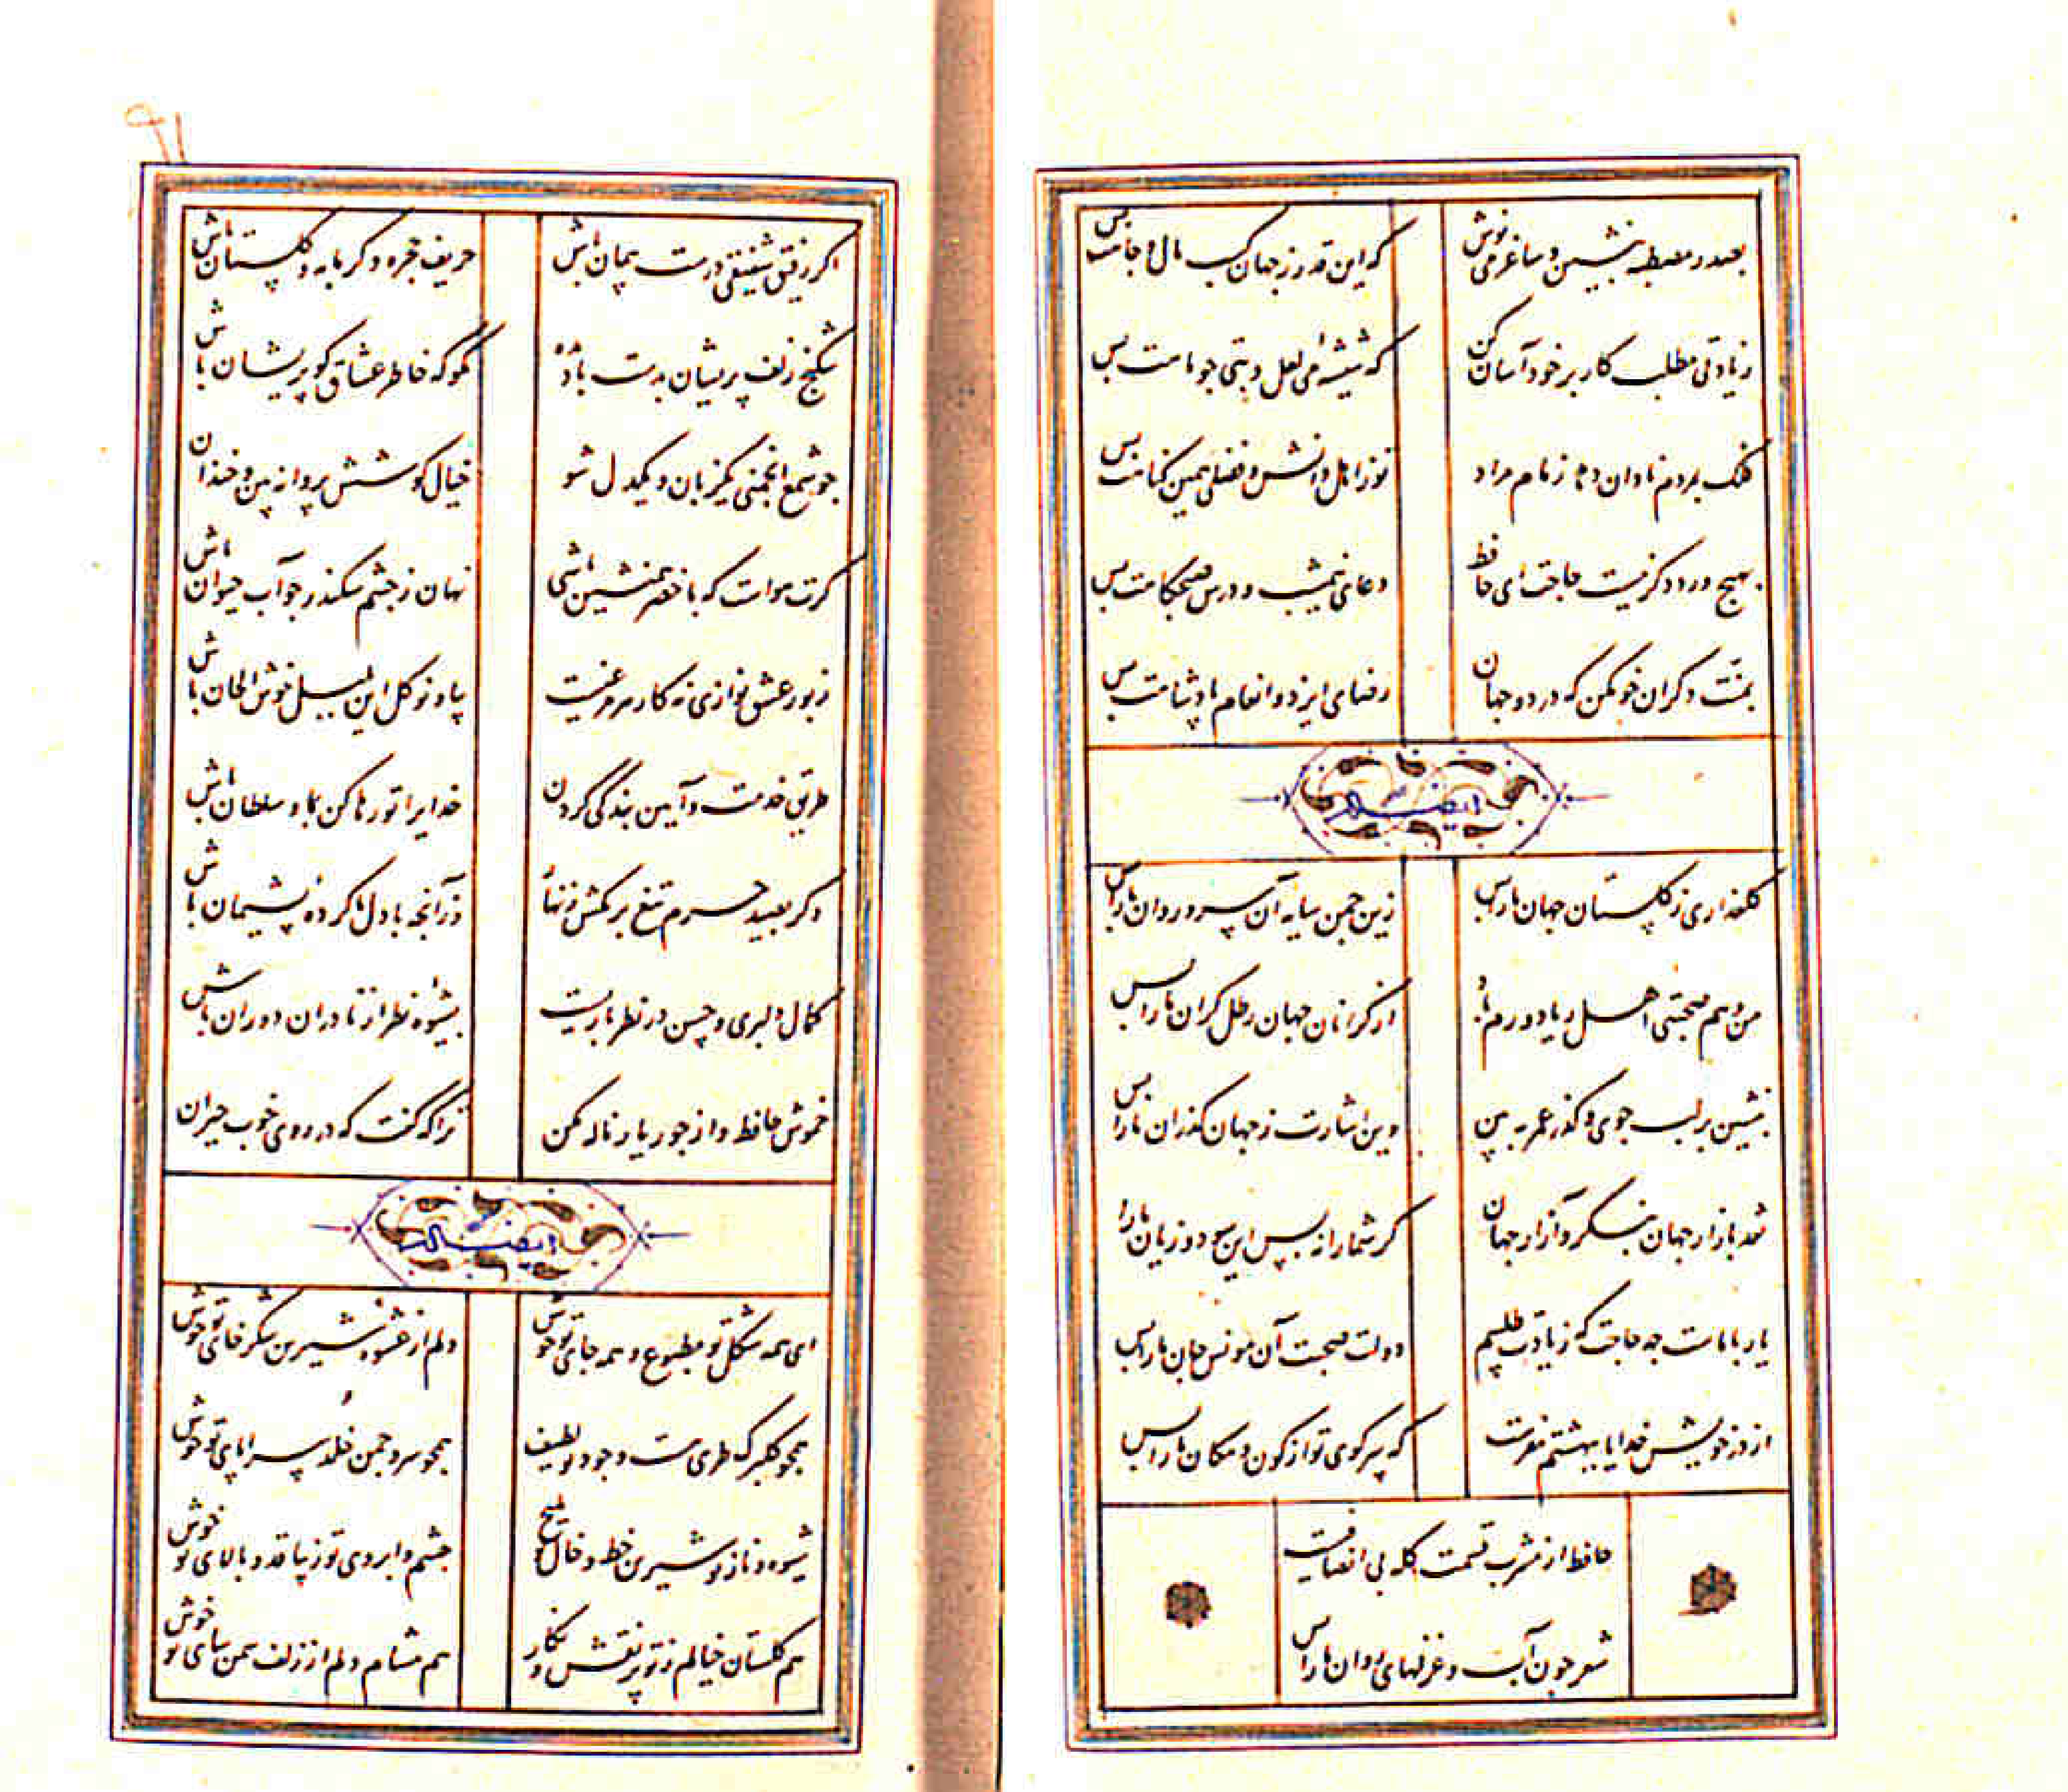 بصدر مصطبه بنشین و ساغر می نوش
که این قدر ز جهان کسب مال و جاهت بس
زیادتی مطلب کار بر خود آسان کن
که شیشه می لعل و بتی جو ماهت بس
فلک بمردم نادان دهد زمام مراد
تو ز اهل دانش و فضلی همین کناهت بس
بهیچ ورد دکر نیست حاجت ای حافظ
دعای نیمشب و درس صبحکاهت بس
بمنت دکران خو مکن که در دو جهان
رضای ایزد و انعام پادشاهت بس
ایضا له
کلعذاری ز کلستان جهان ما را بس
زین جمن سایه آن سرو روان ما را بس
من و هم صحبتی اهل ریا دورم باد
از کرانان جهان رطل کران ما را بس
بنشین بر لب جوی و کذر عمر ببین
وین اشارت ز جهان کذران ما را بس
نقد بازار جهان بنکر و آزار جهان
کر شما را نه بس این سود و زیان ما را
یار با ماست جه حاجت که زیادت طلبیم
دولت صحبت آن مونس جان ما را بس
از در خویش خدایا ببهشتم مفرست
که سر کوی تو از کون و مکان ما را بس
حافظ از مشرب قسمت کله بی انصافیست
شعر جون آب و غزلهای روان ما را بس
۹۱
اکر رفیق شفیقی درست پیمان باش
حریف حجره و کرمابه و کلستان باش
شکنج زلف پریشان بدست باد مده
مکو که خاطر عشاق کو پریشان باش
جو شمع انجمنی یکزبان و یکدل شو
خیال کوشش پروانه بین و خندان
کرت هواست که با خضر همنشین باشی
نهان ز جشم سکندر جو آب حیوان باش
زبور عشق نوازی نه کار هر مرغیست
بیا و نوکل این بلبل خوش الحان باش
طریق خدمت و آیین بندکی کردن
خدایرا تو رها کن بما و سلطان باش
دکر بصید حرم تیغ بر مکش زنهار
وز آنجه با دل ما کرده پشیمان باش
کمال دلبری و حسن در نظر بازیست
بشیوه نظر از نادران دوران باش
خموش حافظ و از جور یار ناله مکن
ترا که کفت که در روی خوب حیران
ایضا له
ای همه شکل تو مطبوع و همه جای تو خوش
دلم از عشوه شیرین شکر خای تو خوش
همجو کلبرک طری هست وجود تو لطیف
همجو سرو جمن خلد سراپای تو خوش
شیوه و ناز تو شیرین خط و خال تو ملیح
جشم و ابروی تو زیبا قد و بالای تو خوش
هم کلستان خیالم ز تو پر نقش و نکار
هم مشام دلم از زلف سمن سای تو خوش